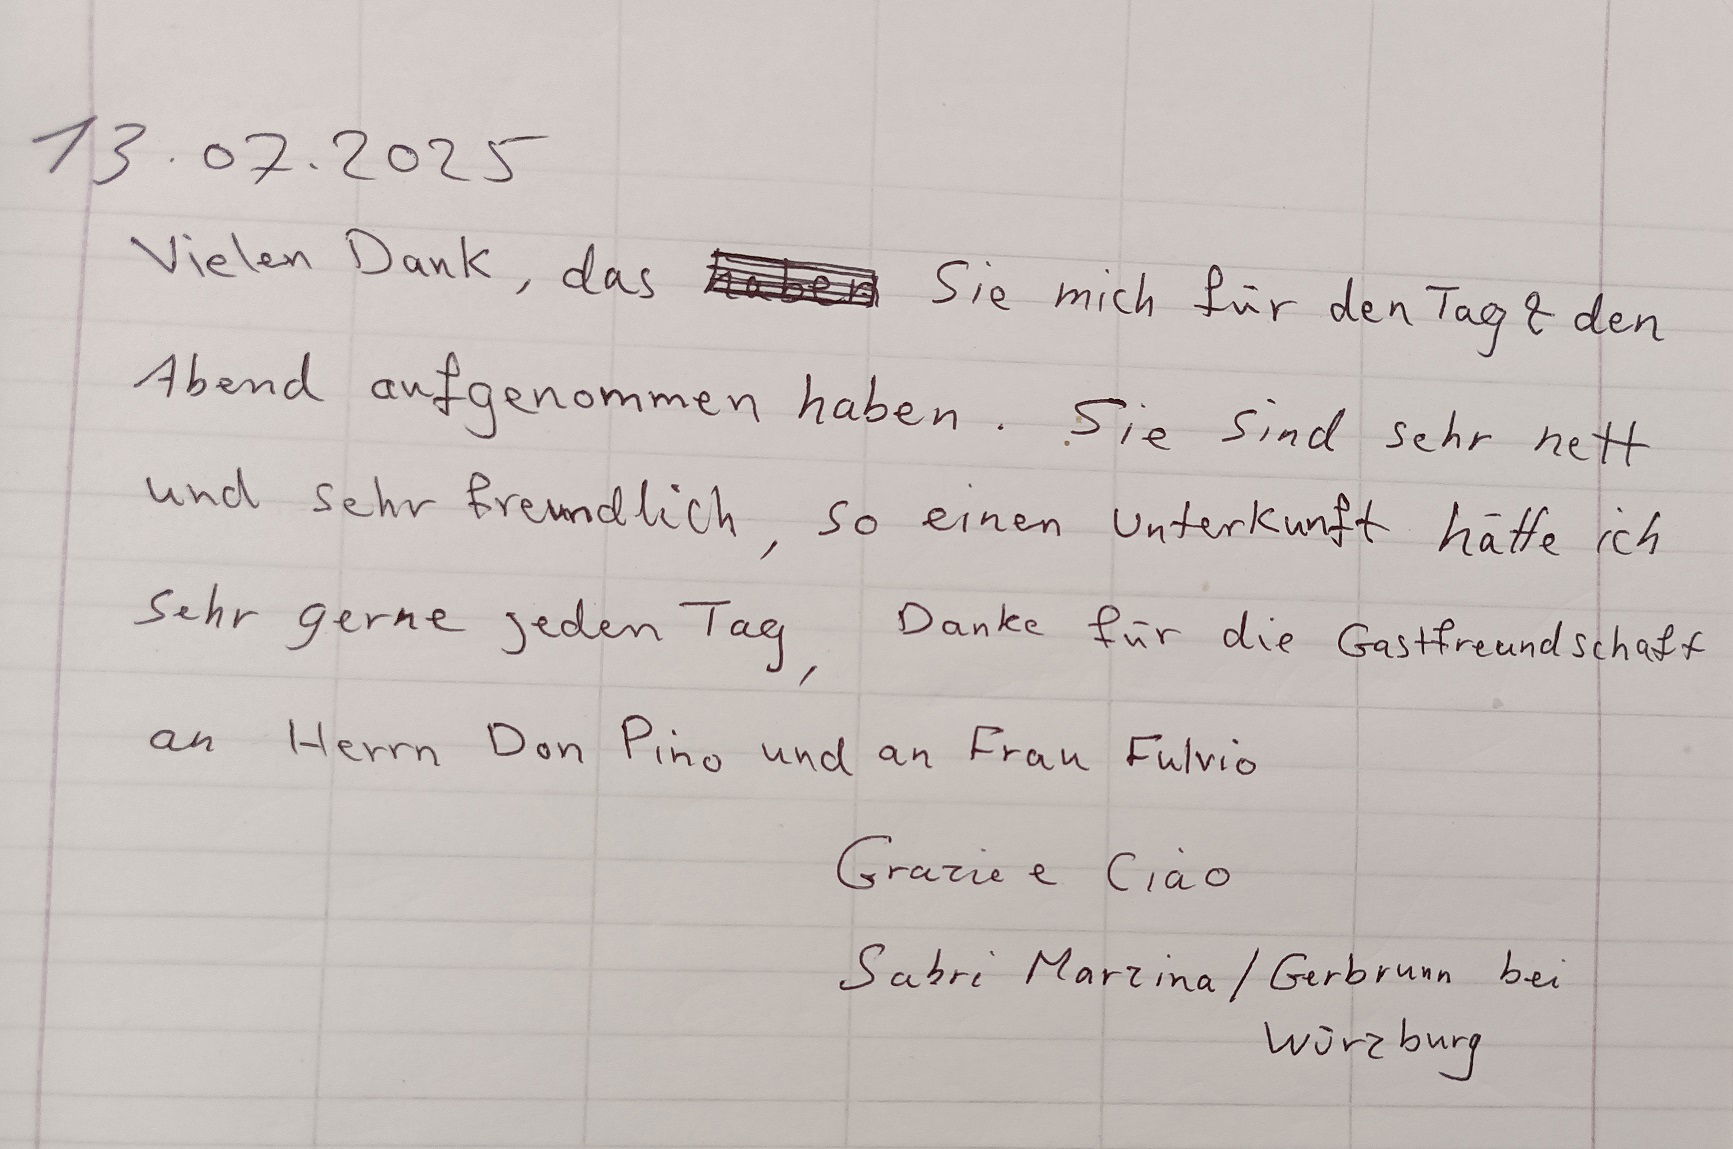 13.07.2025
Vielen Dank, das haben Sie mich für den Tag & den
Abend aufgenommen haben. Sie sind sehr nett
und sehr freundlich, so einen Unterkunft hätte ich
sehr gerne jeden Tag, Danke für die Gastfreundschaft
an Herrn Don Pino und an Frau Fulvio
Grazie e Ciào
Sabri Marzina / Gerbrunn bei
Würzburg